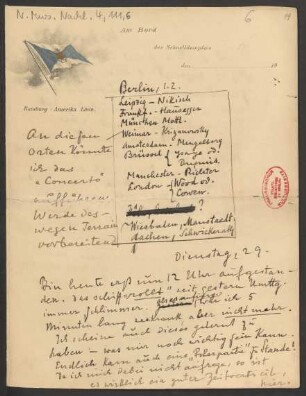 N. Mus. Nachl. 4, 111,6
6
An Bord
des Schnelldampfers
den 19
Hamburg - Amerika Linie.
Berlin, 1.2.
Leipzig - Nikisch
Frankf. - Hausegger
München Mottl.
Weimar - Krzyzanowsky
Amsterdam - Mengelberg
Brüssel { Ysaye od.
Dupuis
Manchester - Richter
London { Wood od.
Cowen
?
Wiesbaden, Mannstaedt
Aachen, Schwickerath
An diesen
Orten könnte
ich das
"Concerto"
aufführen.
Werde des-
wegen Terrain
vorbereiten
Dienstag, 29.
Bin heute erst um 12 Uhr aufgestan-
den. Das Schiff "rollt" seit gestern Mittg.
immer schlimmer. ich 5
Minuten lang seekrank aber nicht mehr.
Ich scheine auch dieses gelernt z-
haben - was mir noch wichtig sein kann.
Endlich kam auch eine "Pokerpartie" zu Stande!
Da ich mich dabei nicht aufrege, so ist
es wirklich ein guter Zeitvertreib,
hier.